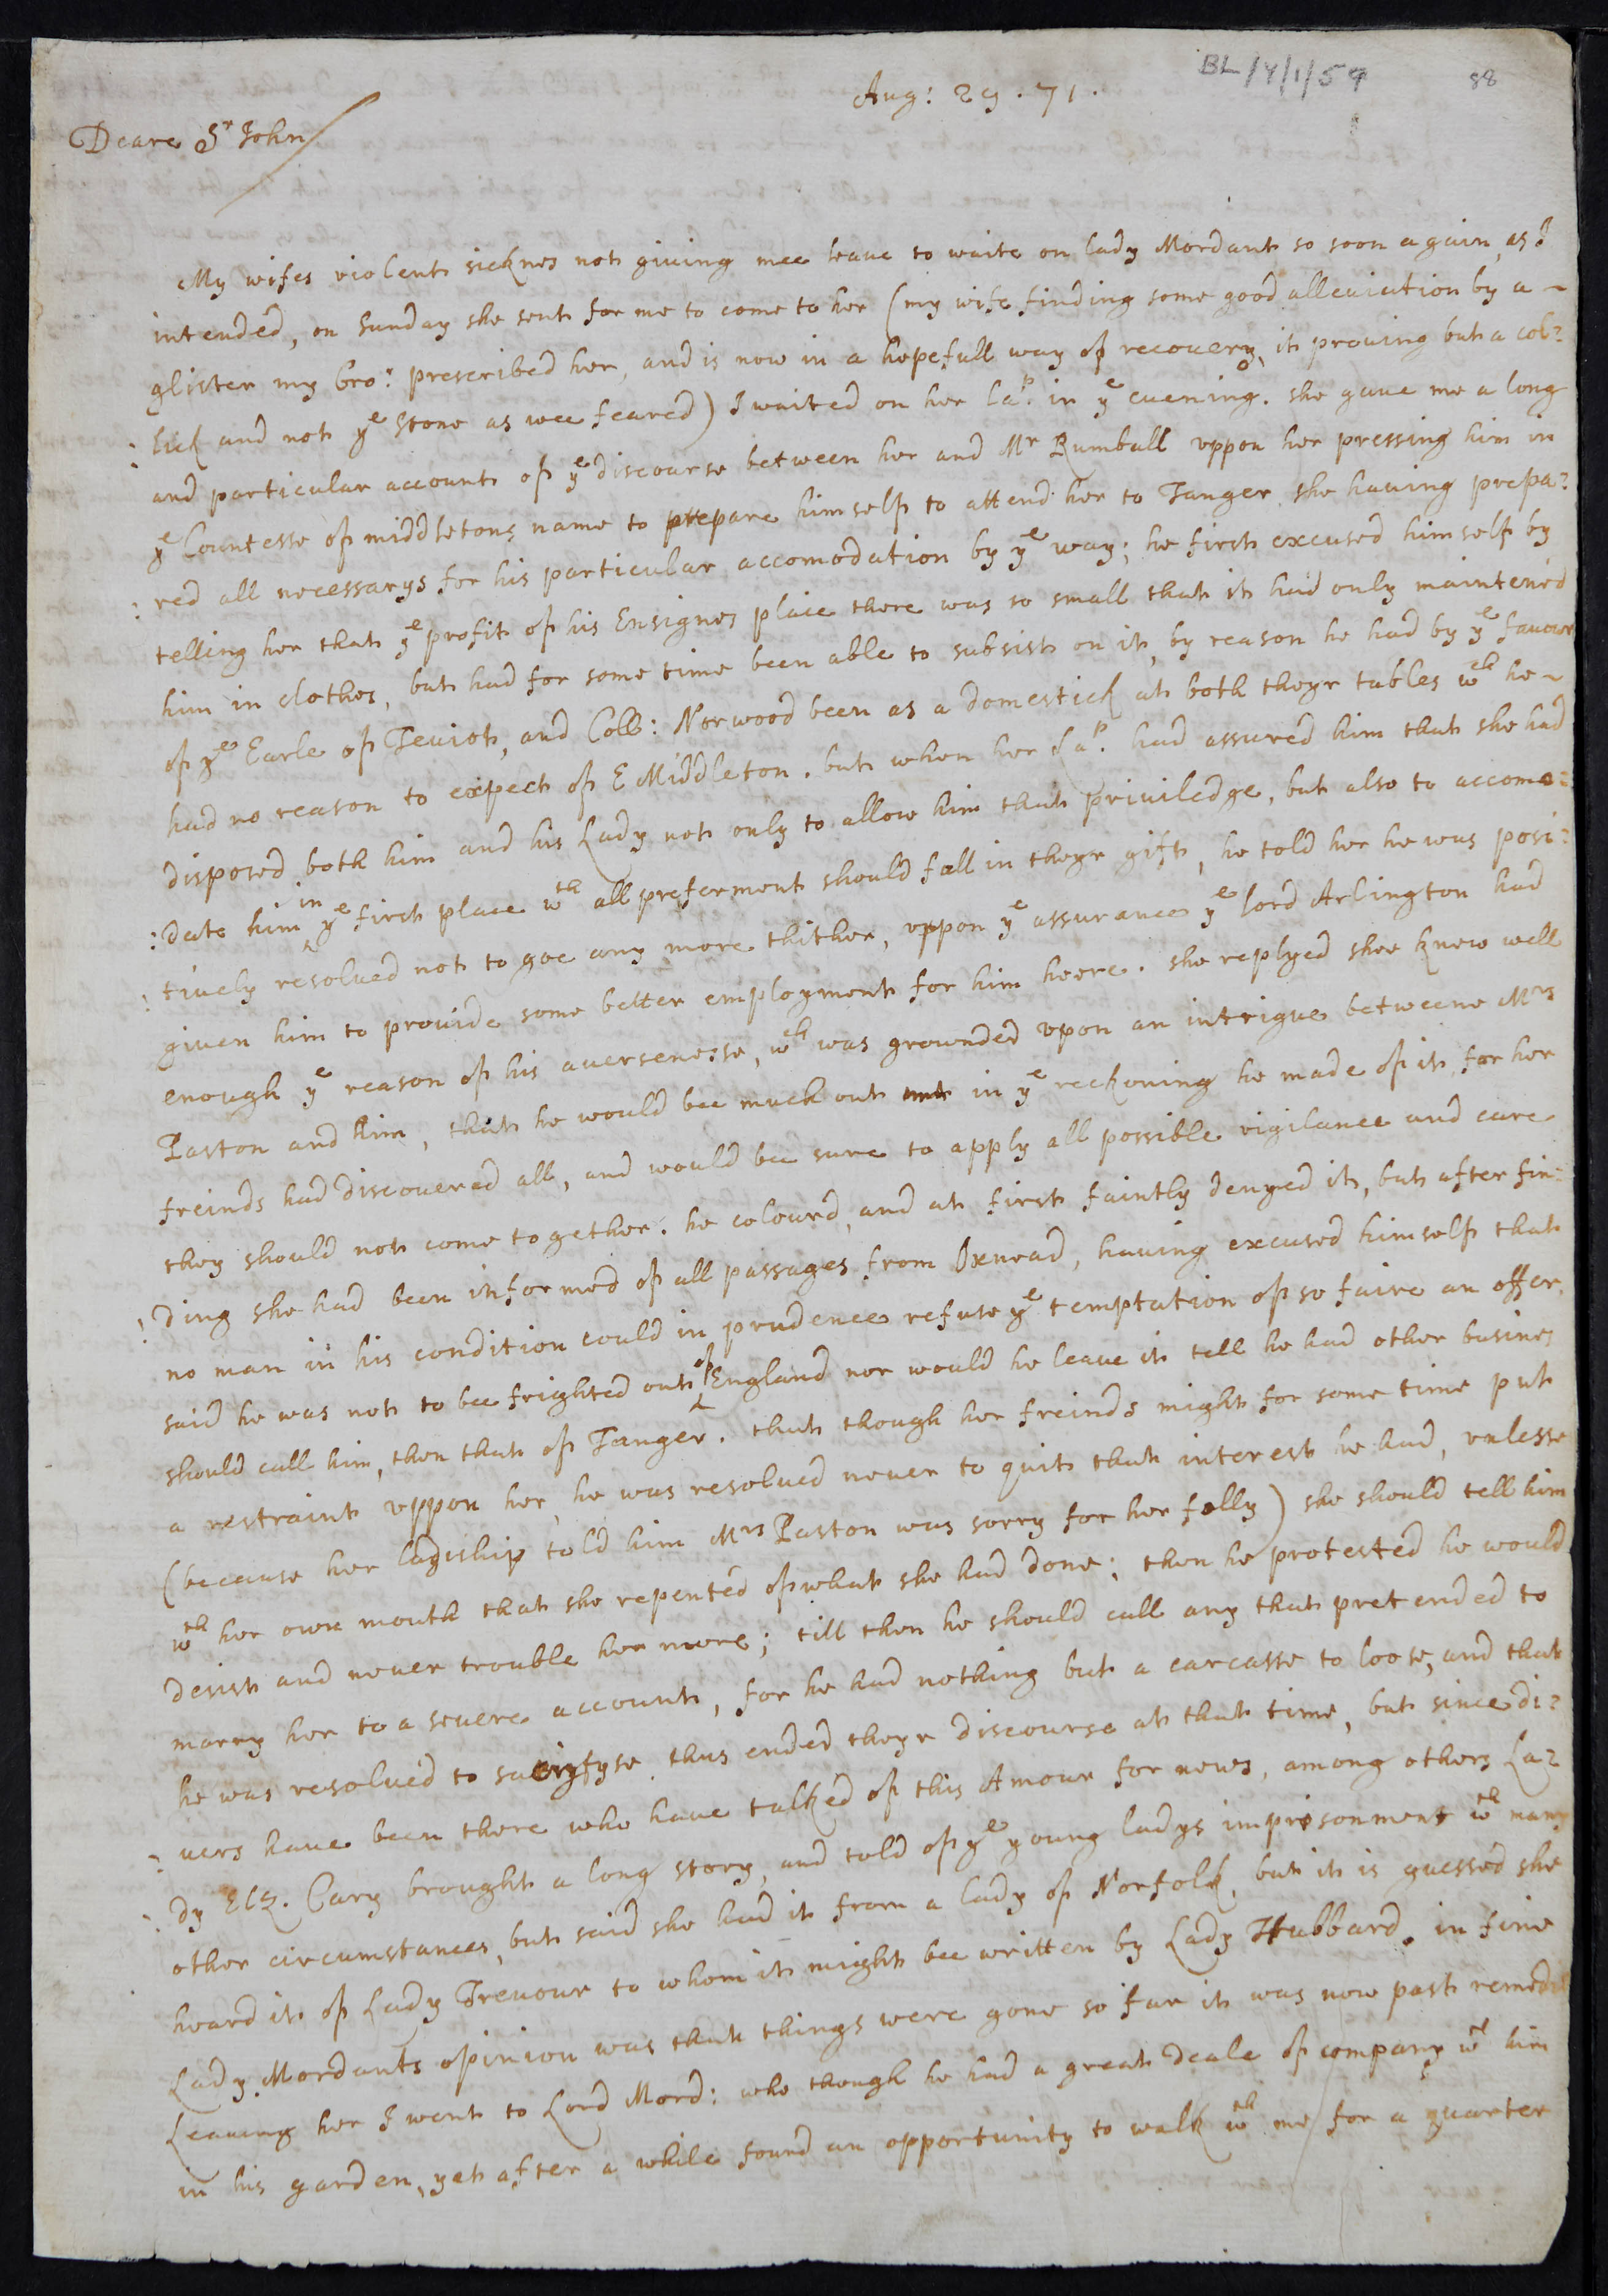 BL/Y/1/59
88
Aug: 29 . 71 .
Deare Sr John
My wifes violent sicknes not giuing mee leaue to waite on lady Mordant so soon again, as I
intended, on Sunday she sent for me to come to her (my wife finding some good alleuiation by a
glister my bro: prescribed her, and is now in a hopefull way of recouery, it prouing but a col:
:lick and not ye stone as wee feared) I waited on her lap. in ye euening. she gaue me a long
and particular account of ye discourse between her and Mr Rumball vppon her pressing him in
ye Countesse of middletons name to prepare himself to attend her to Tanger she hauing prepa:
:red all necessarys for his particular accomodation by ye way; he first excused himself by
telling her that ye profit of his Ensignes place there was so small that it had only maintened
him in clothes, but had for some time been able to subsist on it, by reason he had by ye fauour
of ye Earle of Teuiot, and Coll: Norwood been as a domestick at both theyr tables wch he
had no reason to expect of E Middleton. but when her Lap. had assured him that she had
disposed both him and his Lady not only to allow him that priviledge, but also to accomo:
:date him in ye first place wth all preferment should fall in theyr gift, he told her he was posi:
:tively resolued not to goe any more thither, vppon ye assurance ye lord Arlington had
given him to prouide some better employment for him heere. she replyed shee knew well
enough ye reason of his auersenesse, wch was grownded vpon an intrigue betweene Mrs
Paston and him, that he would bee much out in ye reckoning he made of it, for her
freinds had discouered all, and would bee sure to apply all possible vigilance and care
they should not come together. he colourd, and at first faintly denyed it, but after fin:
:ding she had been informed of all passages from Oxnead, hauing excused himself that
no man in his condition could in prudence refuse ye temptation of so faire an offer,
said he was not to bee frighted out of England nor would he leaue it tell he had other busines
should call him, then that of Tanger. that though her freinds might for some time put
a restraint vppon her, he was resolued neuer to quit that interest he had, vnlesse
(because her ladiship told him Mrs Paston was sorry for her folly) she should tell him
wth her own mouth that she repented of what she had done; then he protested he would
desist and neuer trouble her more; till then he should call any that pretended to
marry her to a seuere account, for he had nothing but a carcasse to loose, and that
he was resolued to sacryfyse. thus ended theyr discourse at that time, but since di:
:uers haue been there who haue talked of this Amour for news, among others La:
:dy Elz. Cary brought a long story, and told of ye young ladys imprisonment wth many
other circumstances, but said she had it from a lady of Norfolk, but it is guessed she
heard it of Lady Treuour to whom it might bee written by Lady Hubbard. in fine
Lady Mordants opinion was that things were gone so far it was now past remedi
Leauing her I went to Lord Mord: who though he had a great deale of company wth him
in his garden, yet after a while found an opportunity to walk wth me for a quarter